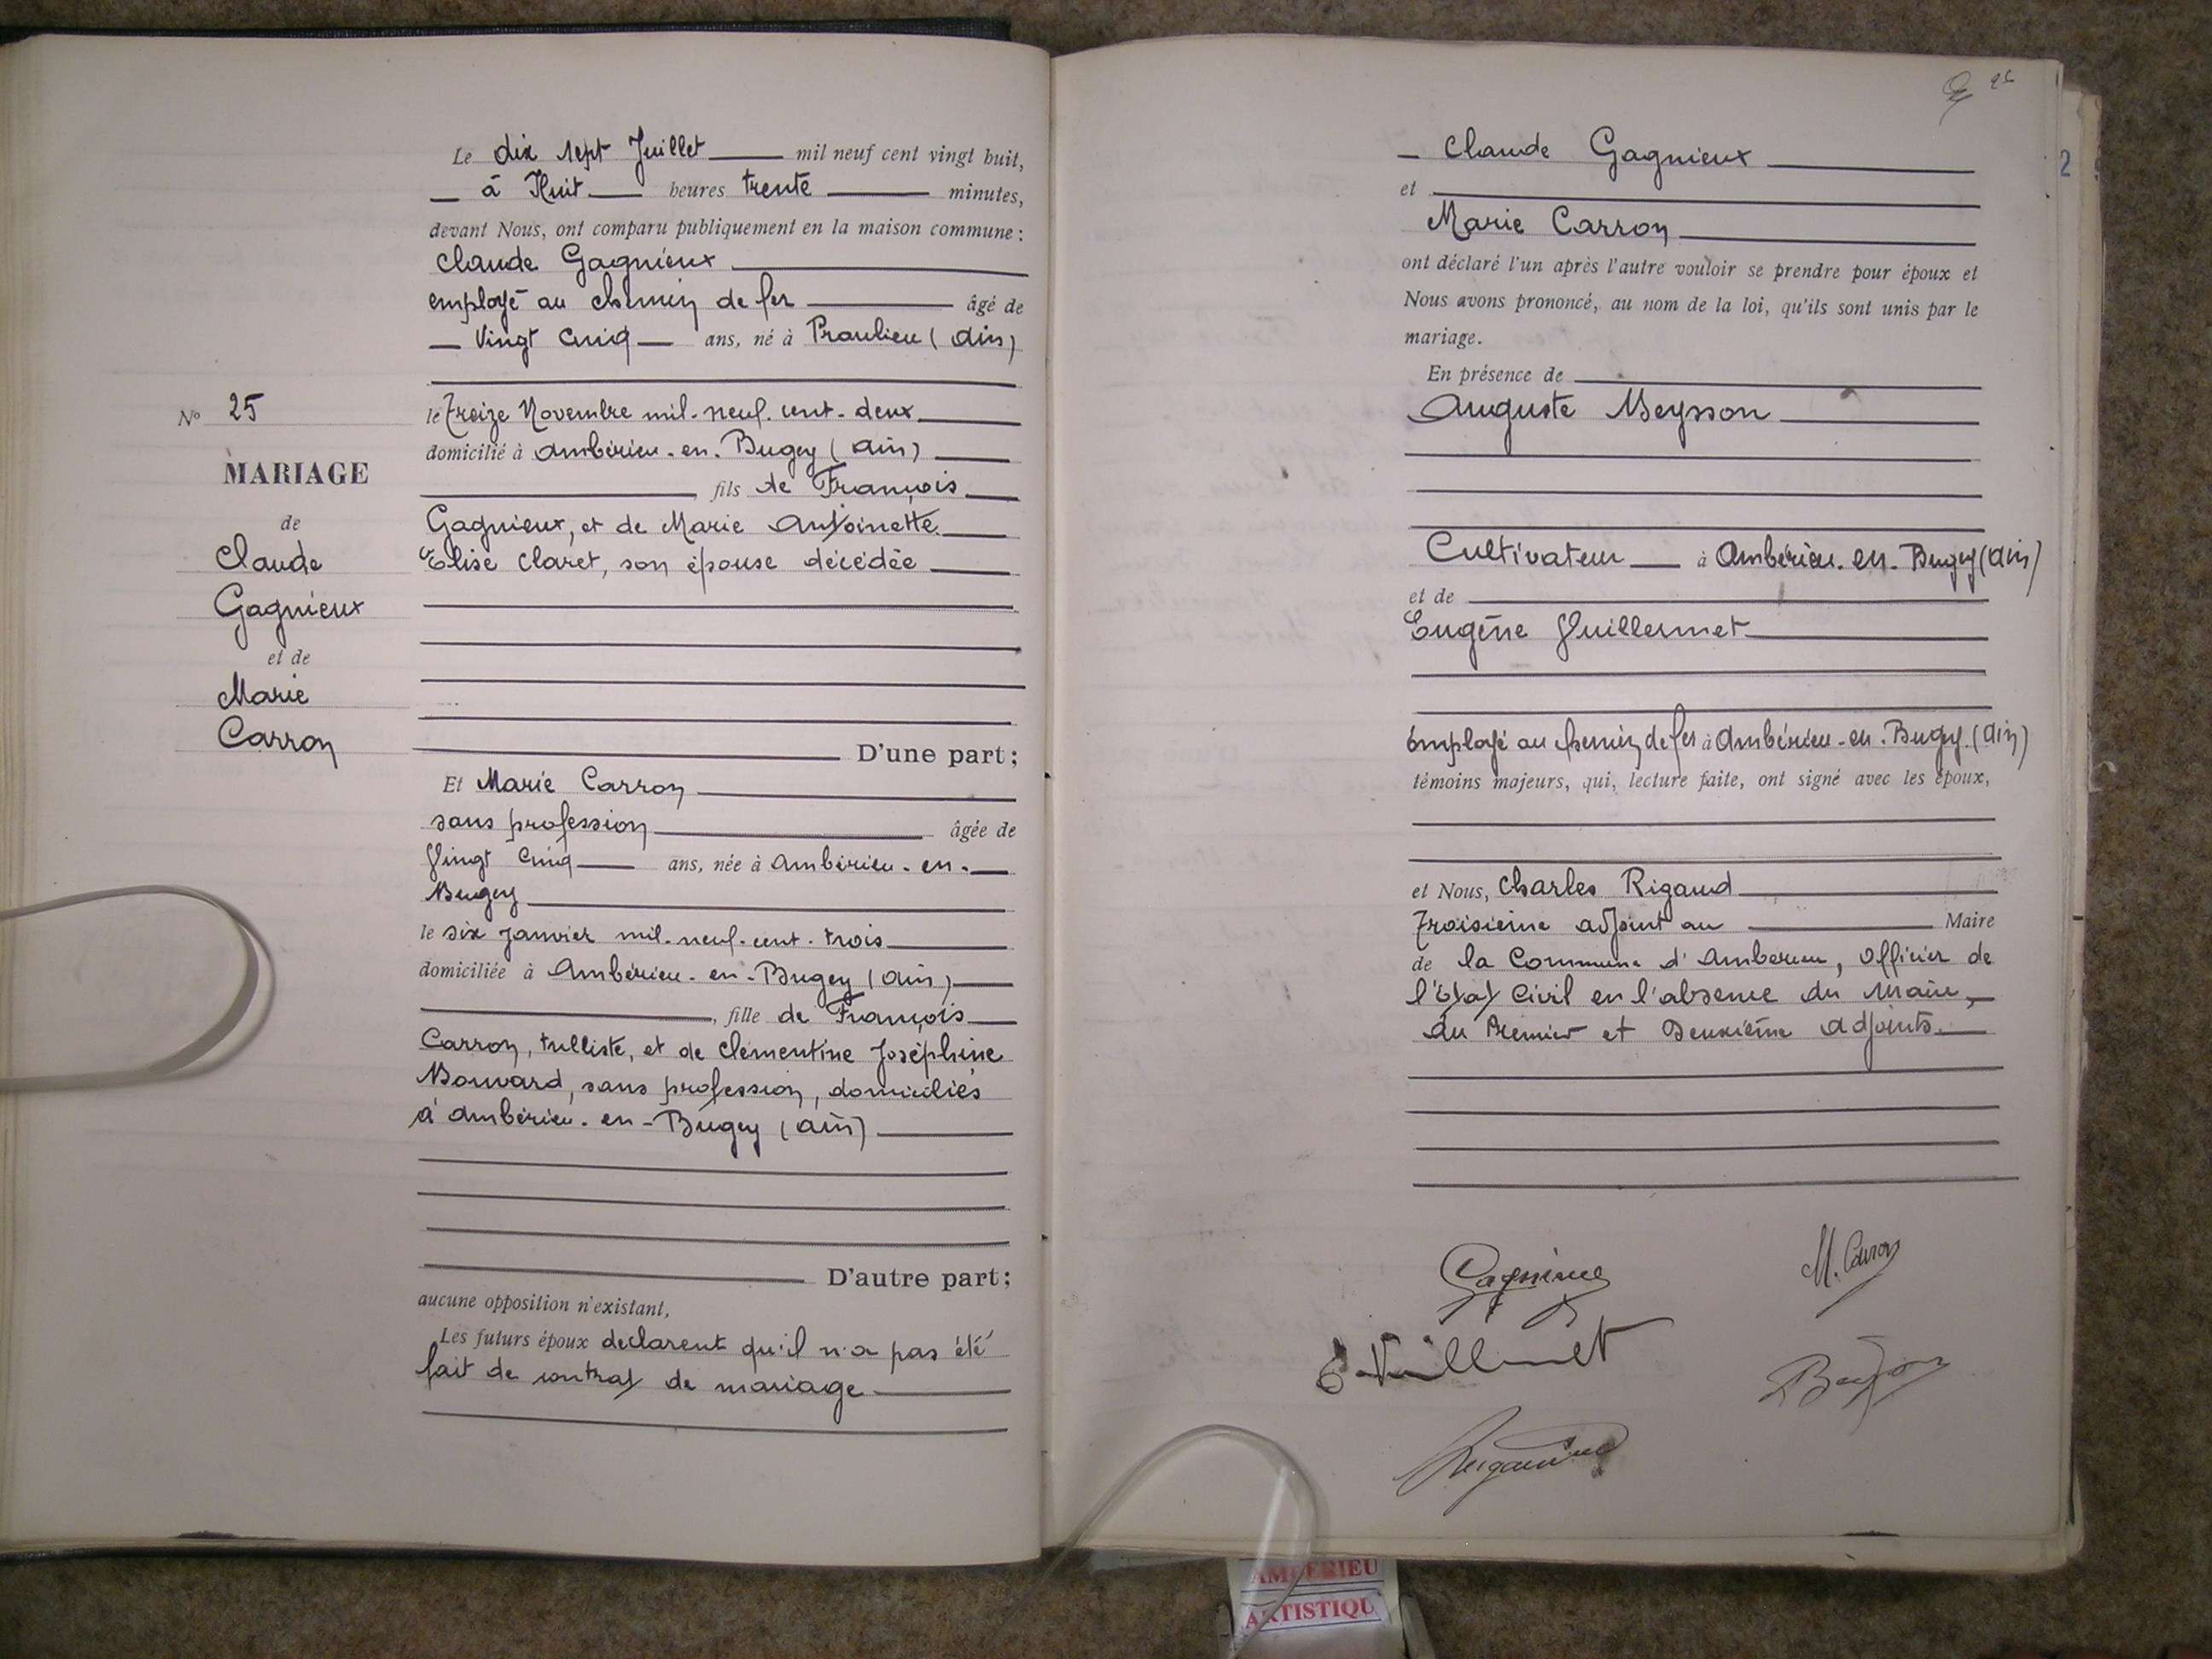 Le dix sept Juillet mil neuf cent vingt huit,
à Huit heures trente minutes,
devant Nous, ont comparu publiquement en la maison commune :
Claude Gagnieux
employé au chemin de fer âgé de
Vingt cinq ans, né à Praulieu (Ain)
le Treize Novembre mil-neuf-cent-deux
domicilié à Ambérieu-en-Bugey (Ain)
fils de François
Gagnieux, et de Marie Antoinette
Elise Claret, son épouse décédée
D'une part ;
Et Marie Carron
sans profession âgée de
Vingt cinq ans, née à Ambérieu-en-
Bugey
le six janvier mil-neuf-cent-trois
domiciliée à Ambérieu-en-Bugey (Ain)
, fille de François
Carron, tulliste, et de Clémentine Joséphine
Bouvard, sans profession, domiciliés
à Ambérieu-en-Bugey (Ain)
D'autre part ;
aucune opposition n'existant,
Les futurs époux déclarent qu'il n'a pas été
fait de contrat de mariage
No 25
MARIAGE
de
Claude
Gagnieux
et de
Marie
Carron
25
Claude Gagnieux
et
Marie Carron
ont déclaré l'un après l'autre vouloir se prendre pour époux et
Nous avons prononcé, au nom de la loi, qu'ils sont unis par le
mariage.
En présence de
Auguste Beysson
Cultivateur à Ambérieu-en-Bugey (Ain)
et de
Eugène Vuillermet
Employé au chemin de fer à Ambérieu-en-Bugey (Ain)
témoins majeurs, qui, lecture faite, ont signé avec les époux,
et Nous, Charles Rigaud
Troisième adjoint au Maire
de la Commune d'Ambérieu, Officier de
l'Etat Civil en l'absence du Maire,
du Premier et Deuxième Adjoints.
Gagnieux
M. Carron
E. Vuillermet
Beysson
Rigaud
2
AMBERIEU
ARTISTIQU